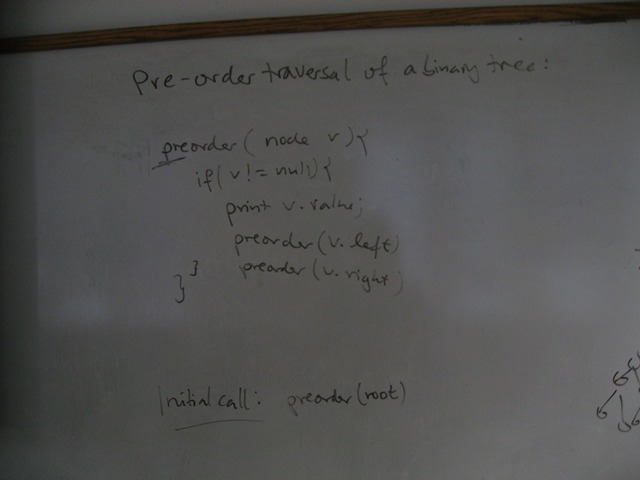 Pre-order traversal of a binary tree:
preorder( node v){
if( v != null){
print v.value;
preorder(v.left)
} preorder (v.right)
}
Initial call: preorder(root)